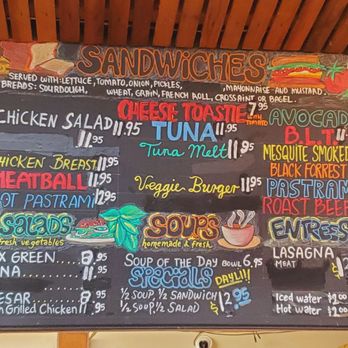 SANDWICHES
SERVED WITH: LETTUCE, TOMATO, ONION, PICKLES,
MAYONNAISE AND MUSTARD.
BREADS: SOURDOUGH,
WHEAT, GRAIN, FRENCH ROLL, CROSSAINT OR BAGEL.
CHICKEN SALAD 11.95
11.95
CHICKEN BREAST 11.95
MEATBALL 11.95
HOT PASTRAMI 11.95
CHEESE TOASTIE 7.95
WITH TOMATO
TUNA 11.95
Tuna Melt 11.95
Veggie Burger 11.95
AVOCADO
B.L.T.
MESQUITE SMOKED
BLACK FORREST
PASTRAMI
ROAST BEEF
SALADS
fresh vegetables
GREEN
.95
11.95
8.95
Grilled Chicken
SOUPS
homemade & fresh
SOUP OF THE DAY BOWL 6.95
SPECIALS DAYLI!!
1/2 SOUP, 1/2 SANDWICH
1/2 SOUP, 1/2 SALAD
$12.95
ENTREES
LASAGNA
MEAT
Iced water
Hot water